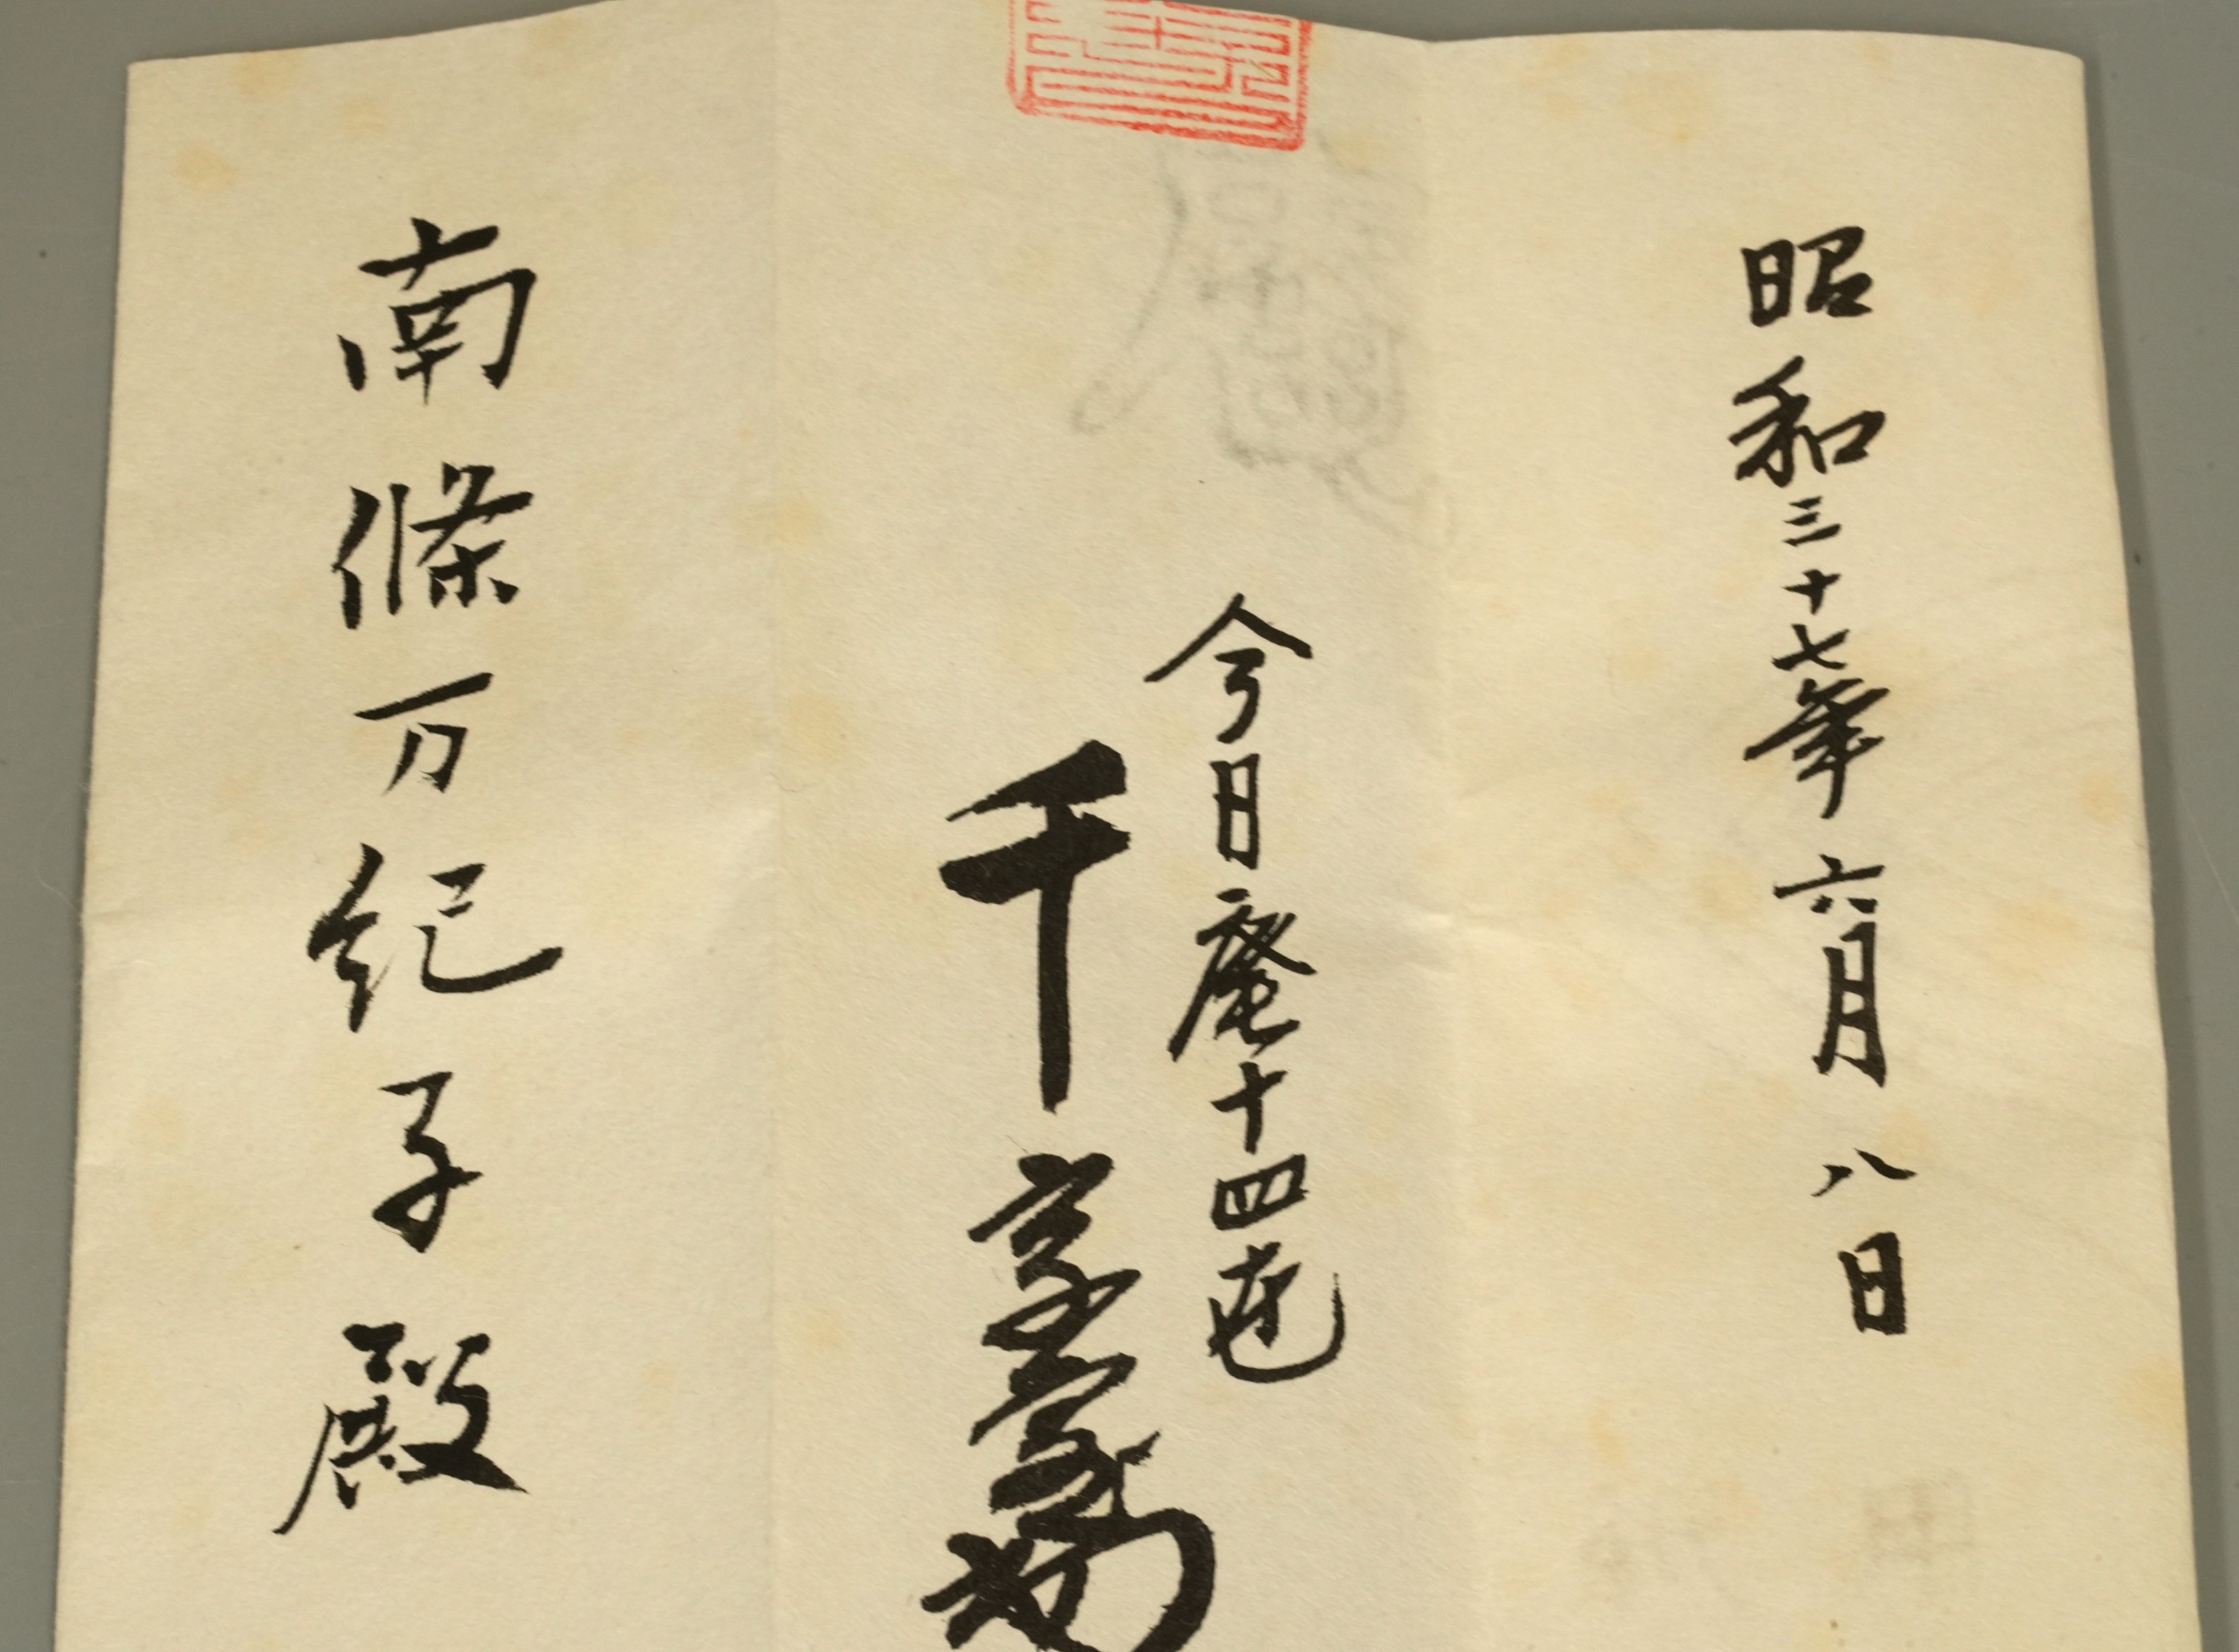 昭和三十七年六月八日
今日庵十四世
千宗室
南條万紀子殿